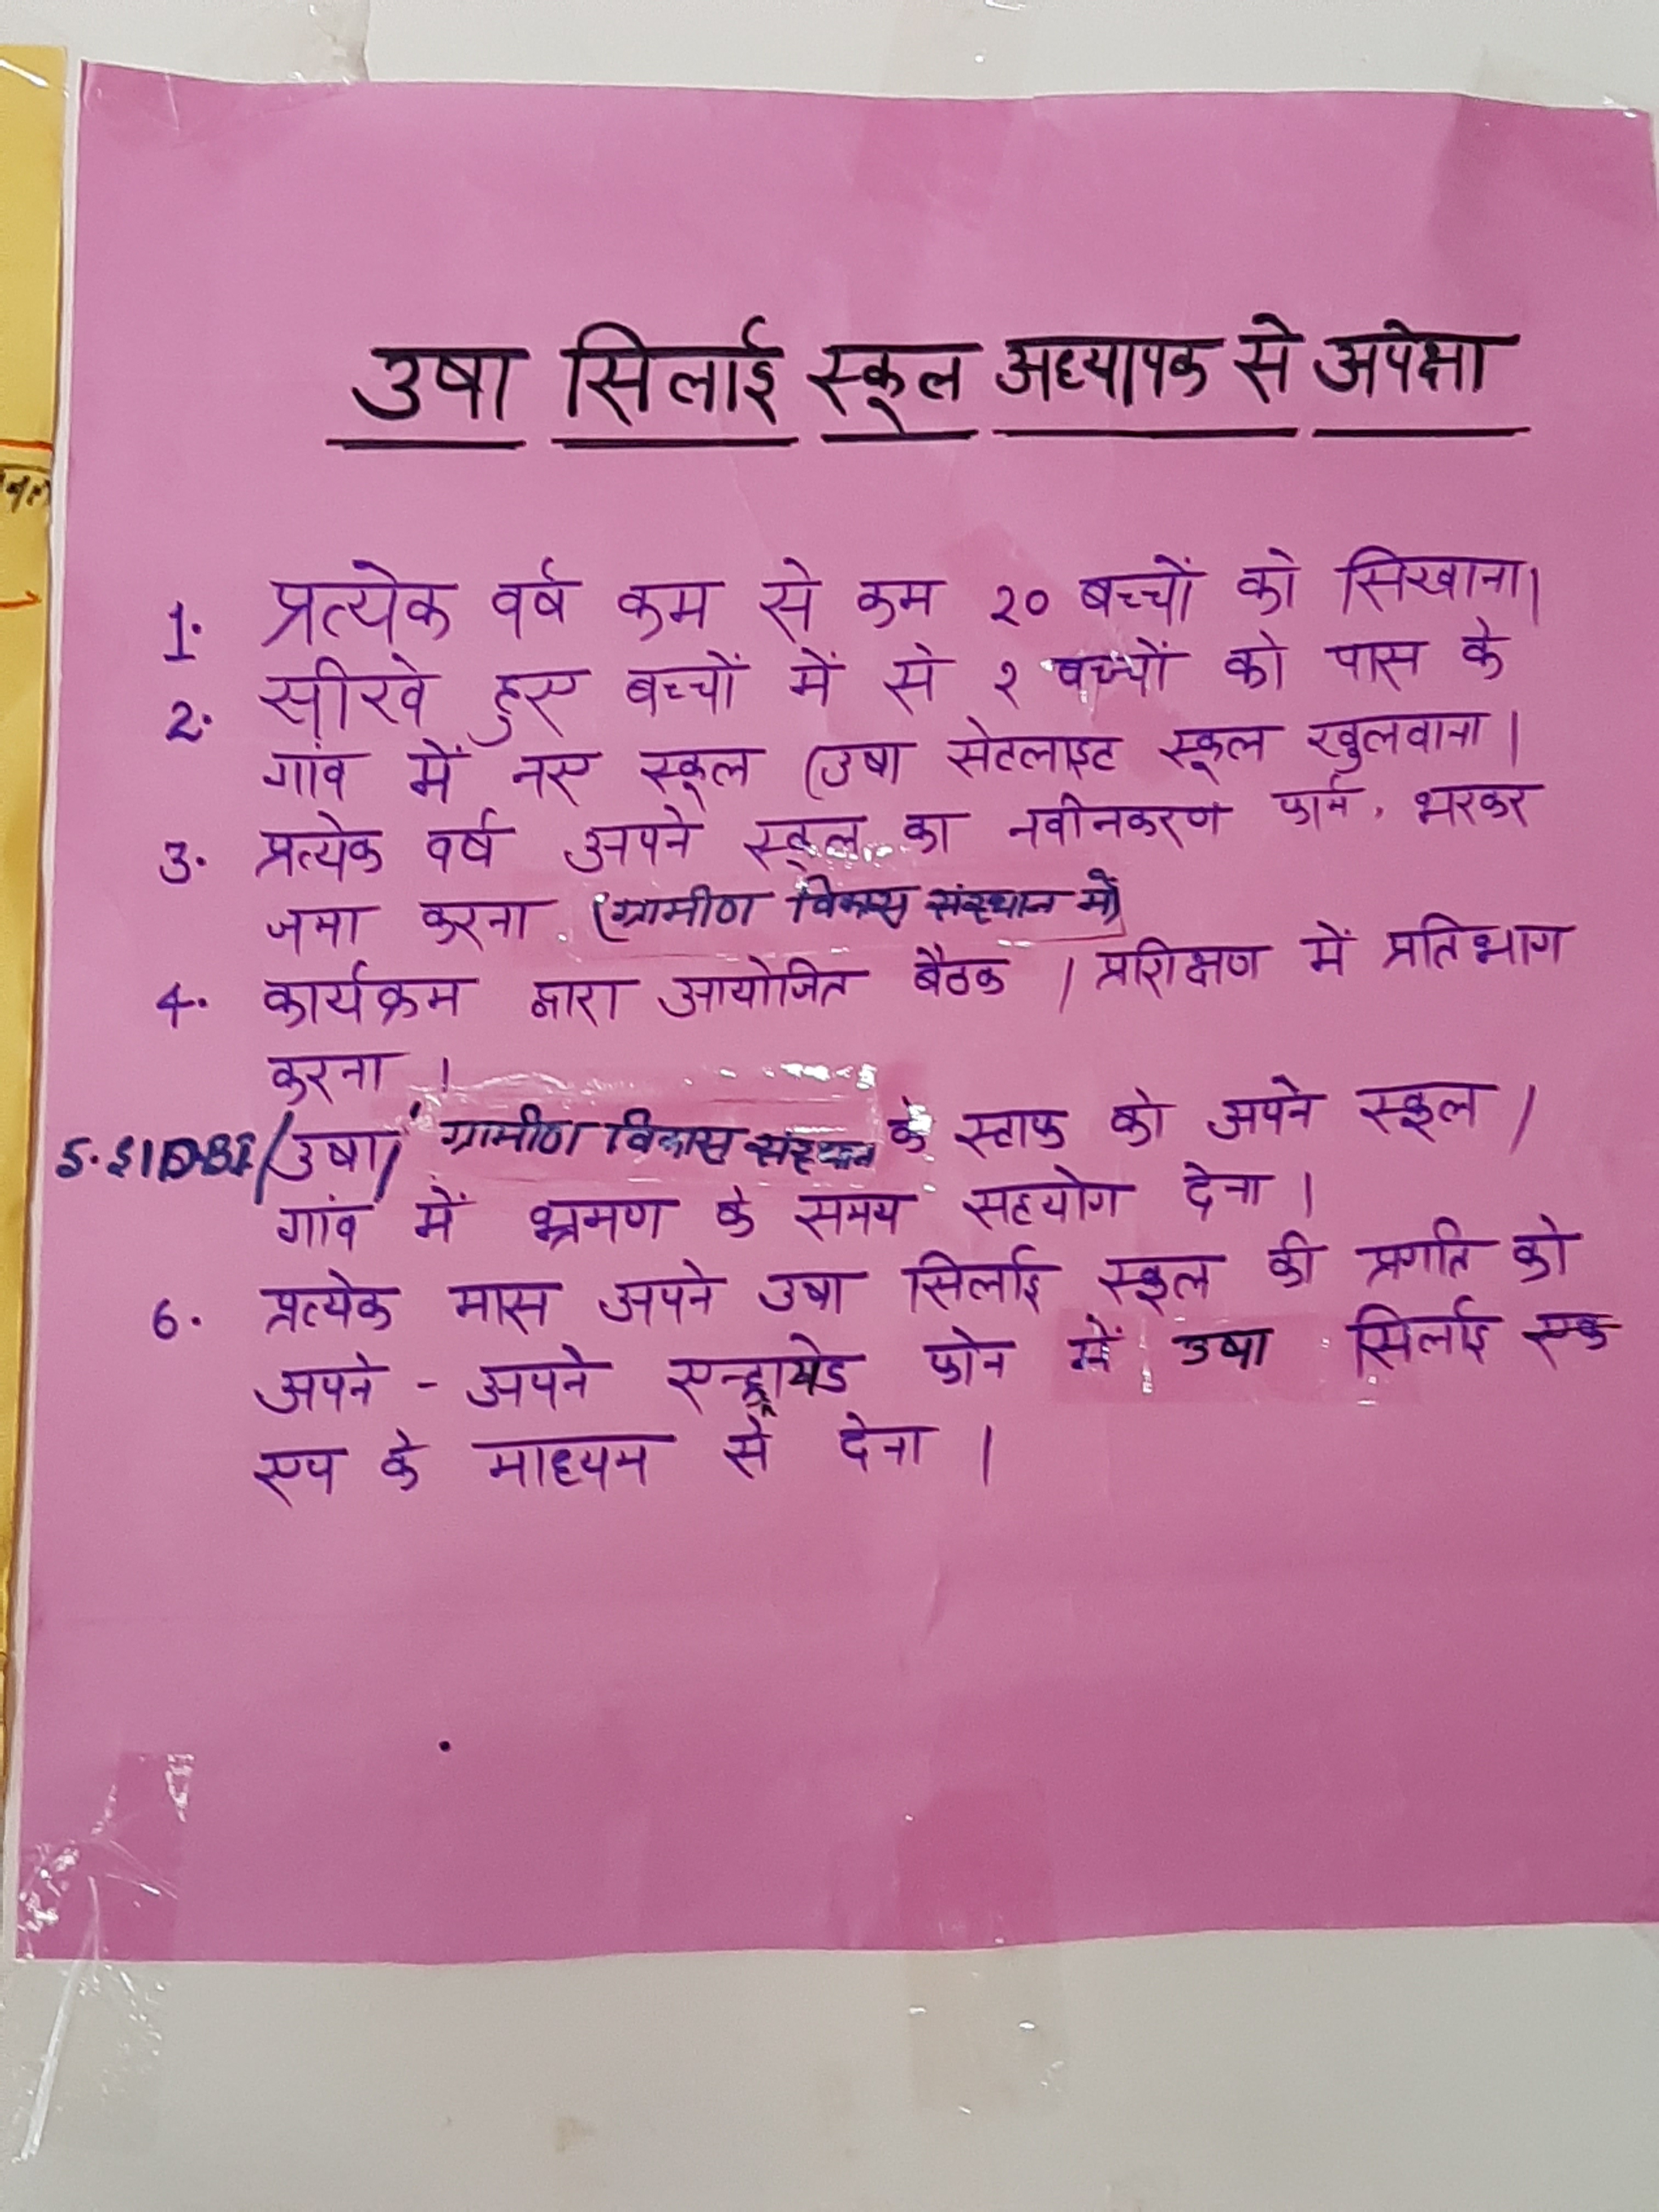 उषा सिलाई स्कूल अध्यापक से अपेक्षा
1. प्रत्येक वर्ष कम से कम २० बच्चों को सिखाना।
2. सीखे हुए बच्चों में से २ बच्चों को पास के
गांव में नए स्कूल (उषा सेटलाइट स्कूल खुलवाना।
3. प्रत्येक वर्ष अपने स्कूल का नवीनकरण फार्म, भरकर
जमा करना (ग्रामीण विकास संस्थान में)
4. कार्यक्रम द्वारा आयोजित बैठक / प्रशिक्षण में प्रतिभाग
करना ।
5. SIDBI/उषा/ ग्रामीण विकास संस्थान के स्टाफ को अपने स्कूल /
गांव में भ्रमण के समय सहयोग देना ।
6. प्रत्येक मास अपने उषा सिलाई स्कूल की प्रगति को
अपने - अपने एन्ड्रायेड फोन में उषा सिलाई स्क
एप के माध्यम से देना ।